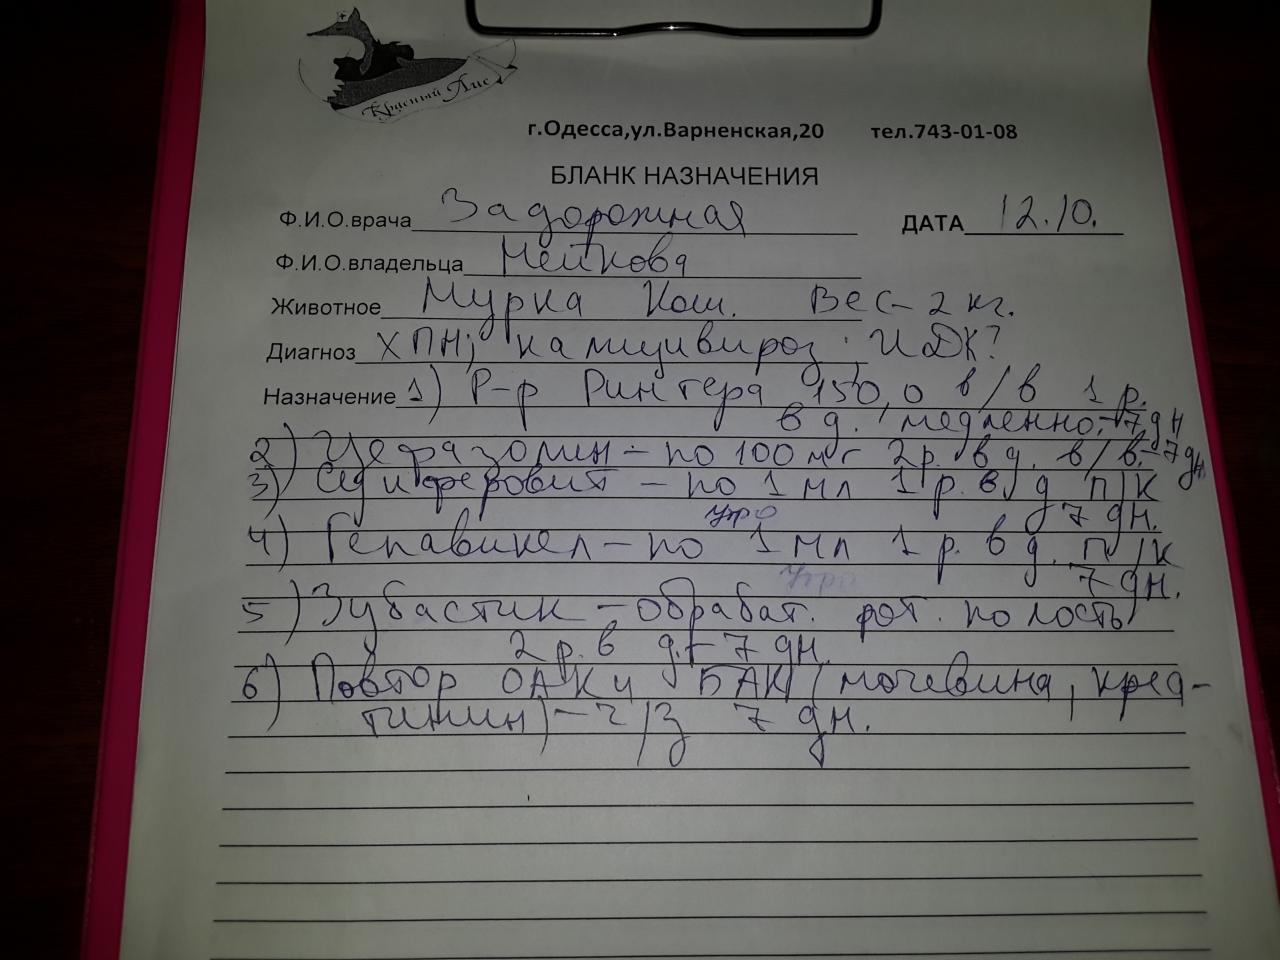 Красный Лис
г.Одесса,ул.Варненская,20 тел.743-01-08
БЛАНК НАЗНАЧЕНИЯ
Ф.И.О.врача Задорожная ДАТА 12.10.
Ф.И.О.владельца Нейкова
Животное Мурка Кош. Вес - 2 кг.
Диагноз ХПН; калицивироз; ИДК?
Назначение 1) Р-р Рингера 150,0 в/в 1 р.
в д. медленно - 7 дн
2) Цефазолин - по 100 мг 2 р. в д. в/в. - 7 дн
3) - по 1 мл 1 р. в д п/к
утро 7 дн.
4) Гепавикел - по 1 мл 1 р. в д. п/к
утро 7 дн.
5) Зубастик - обработ. рот. полость
2 р. в д. - 7 дн.
6) Повтор ОАК и БАК (мочевина, креа-
тинин) - ч/з 7 дн.